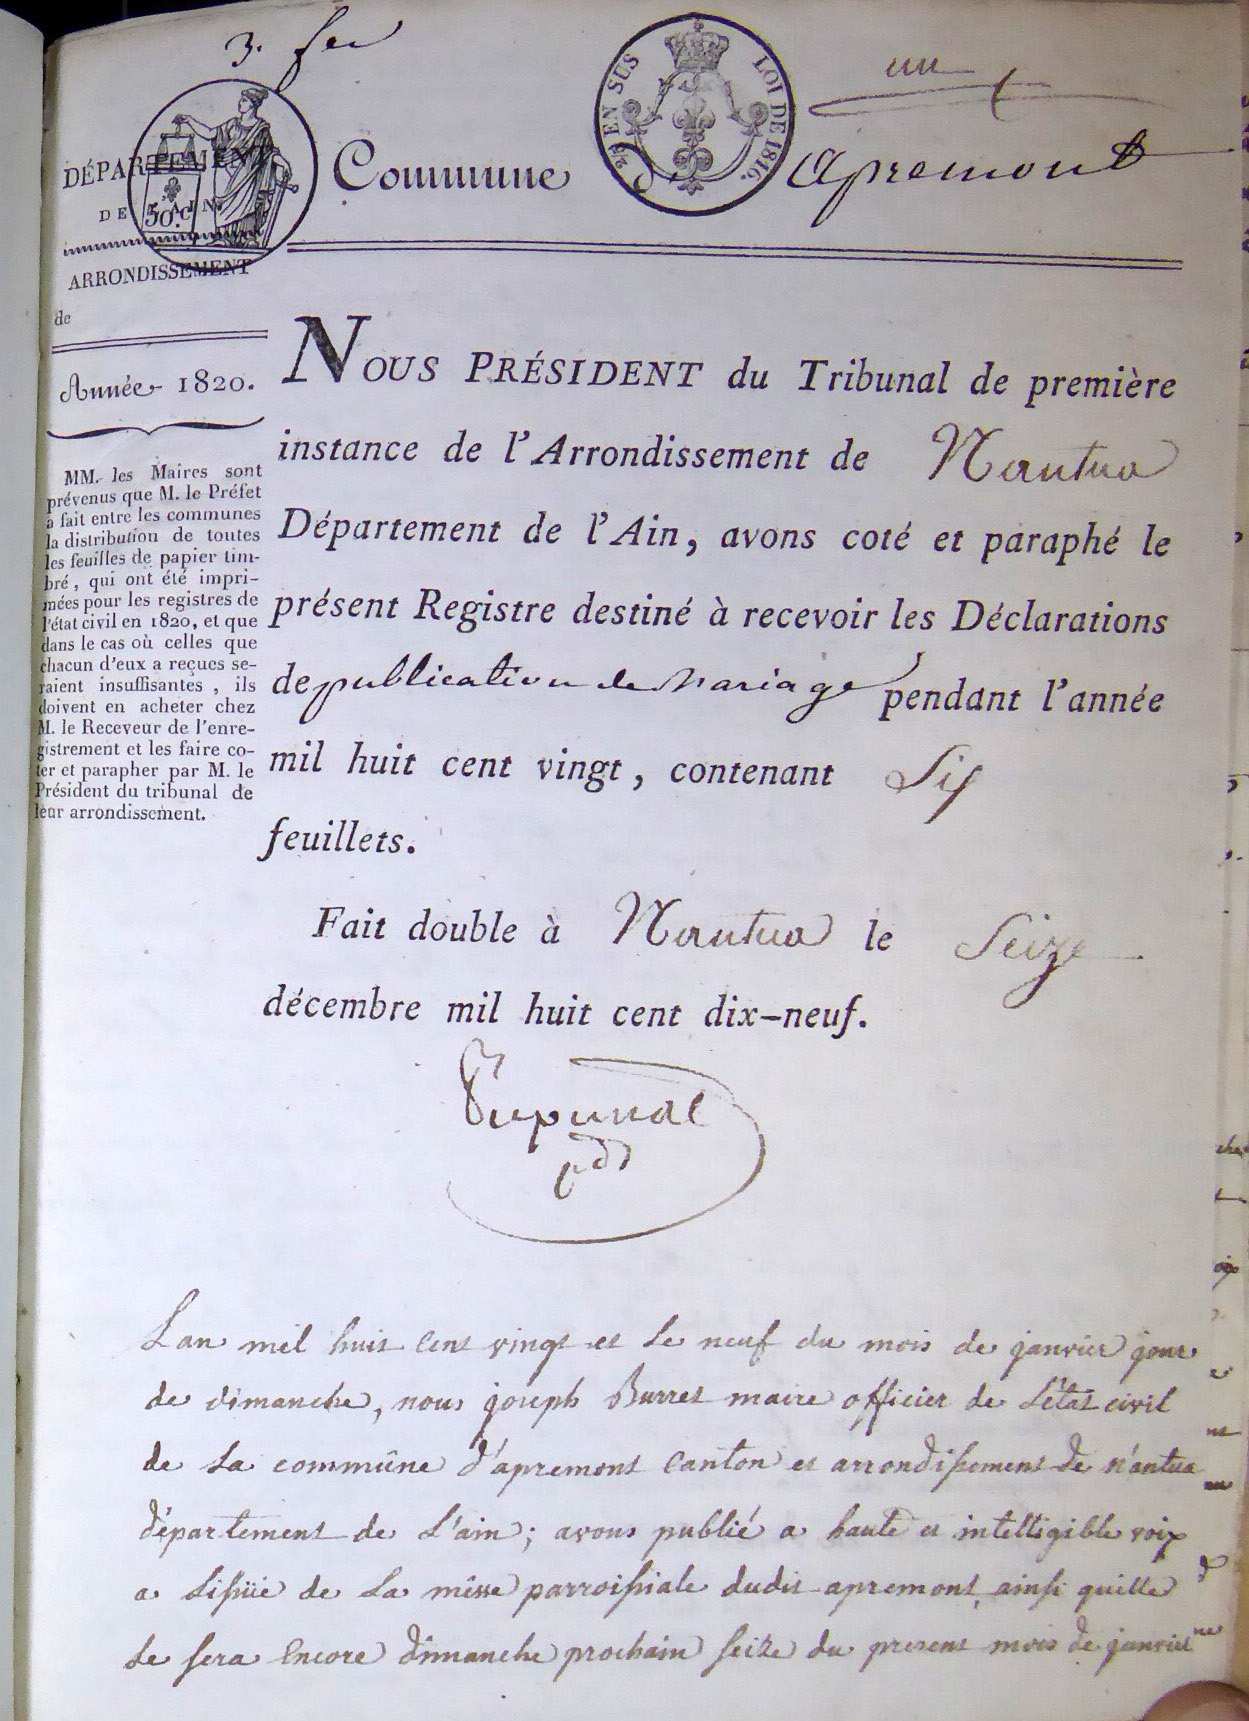 3. fer
un
DÉPARTEMENT
DE L'AIN
50.C
28 EN SUS
LOI DE 1816.
Commune d' Apremont
ARRONDISSEMENT
de
Année 1820.
MM. les Maires sont
prévenus que M. le Préfet
a fait entre les communes
la distribution de toutes
les feuilles de papier tim-
bré, qui ont été impri-
mées pour les registres de
l'état civil en 1820, et que
dans le cas où celles que
chacun d'eux a reçues se-
raient insuffisantes, ils
doivent en acheter chez
M. le Receveur de l'enre-
gistrement et les faire co-
ter et parapher par M. le
Président du tribunal de
leur arrondissement.
NOUS PRÉSIDENT du Tribunal de première
instance de l'Arrondissement de Nantua
Département de l'Ain, avons coté et paraphé le
présent Registre destiné à recevoir les Déclarations
de publication de Mariage pendant l'année
mil huit cent vingt, contenant Six
feuillets.
Fait double à Nantua le Seize
décembre mil huit cent dix-neuf.
pdt
Lan mil huit cent vingt et le neuf du mois de janvier jour
de dimanche, nous joseph Burret maire officier de l'état civil
de la commûne d'apremont canton et arrondissement de nántua
département de L'ain; avons publié a haute et intelligible voix
a lissüe de la messe parroissiale dudit apremont, ainsi quelle
le sera encore dimanche prochain seize du present mois de janvier